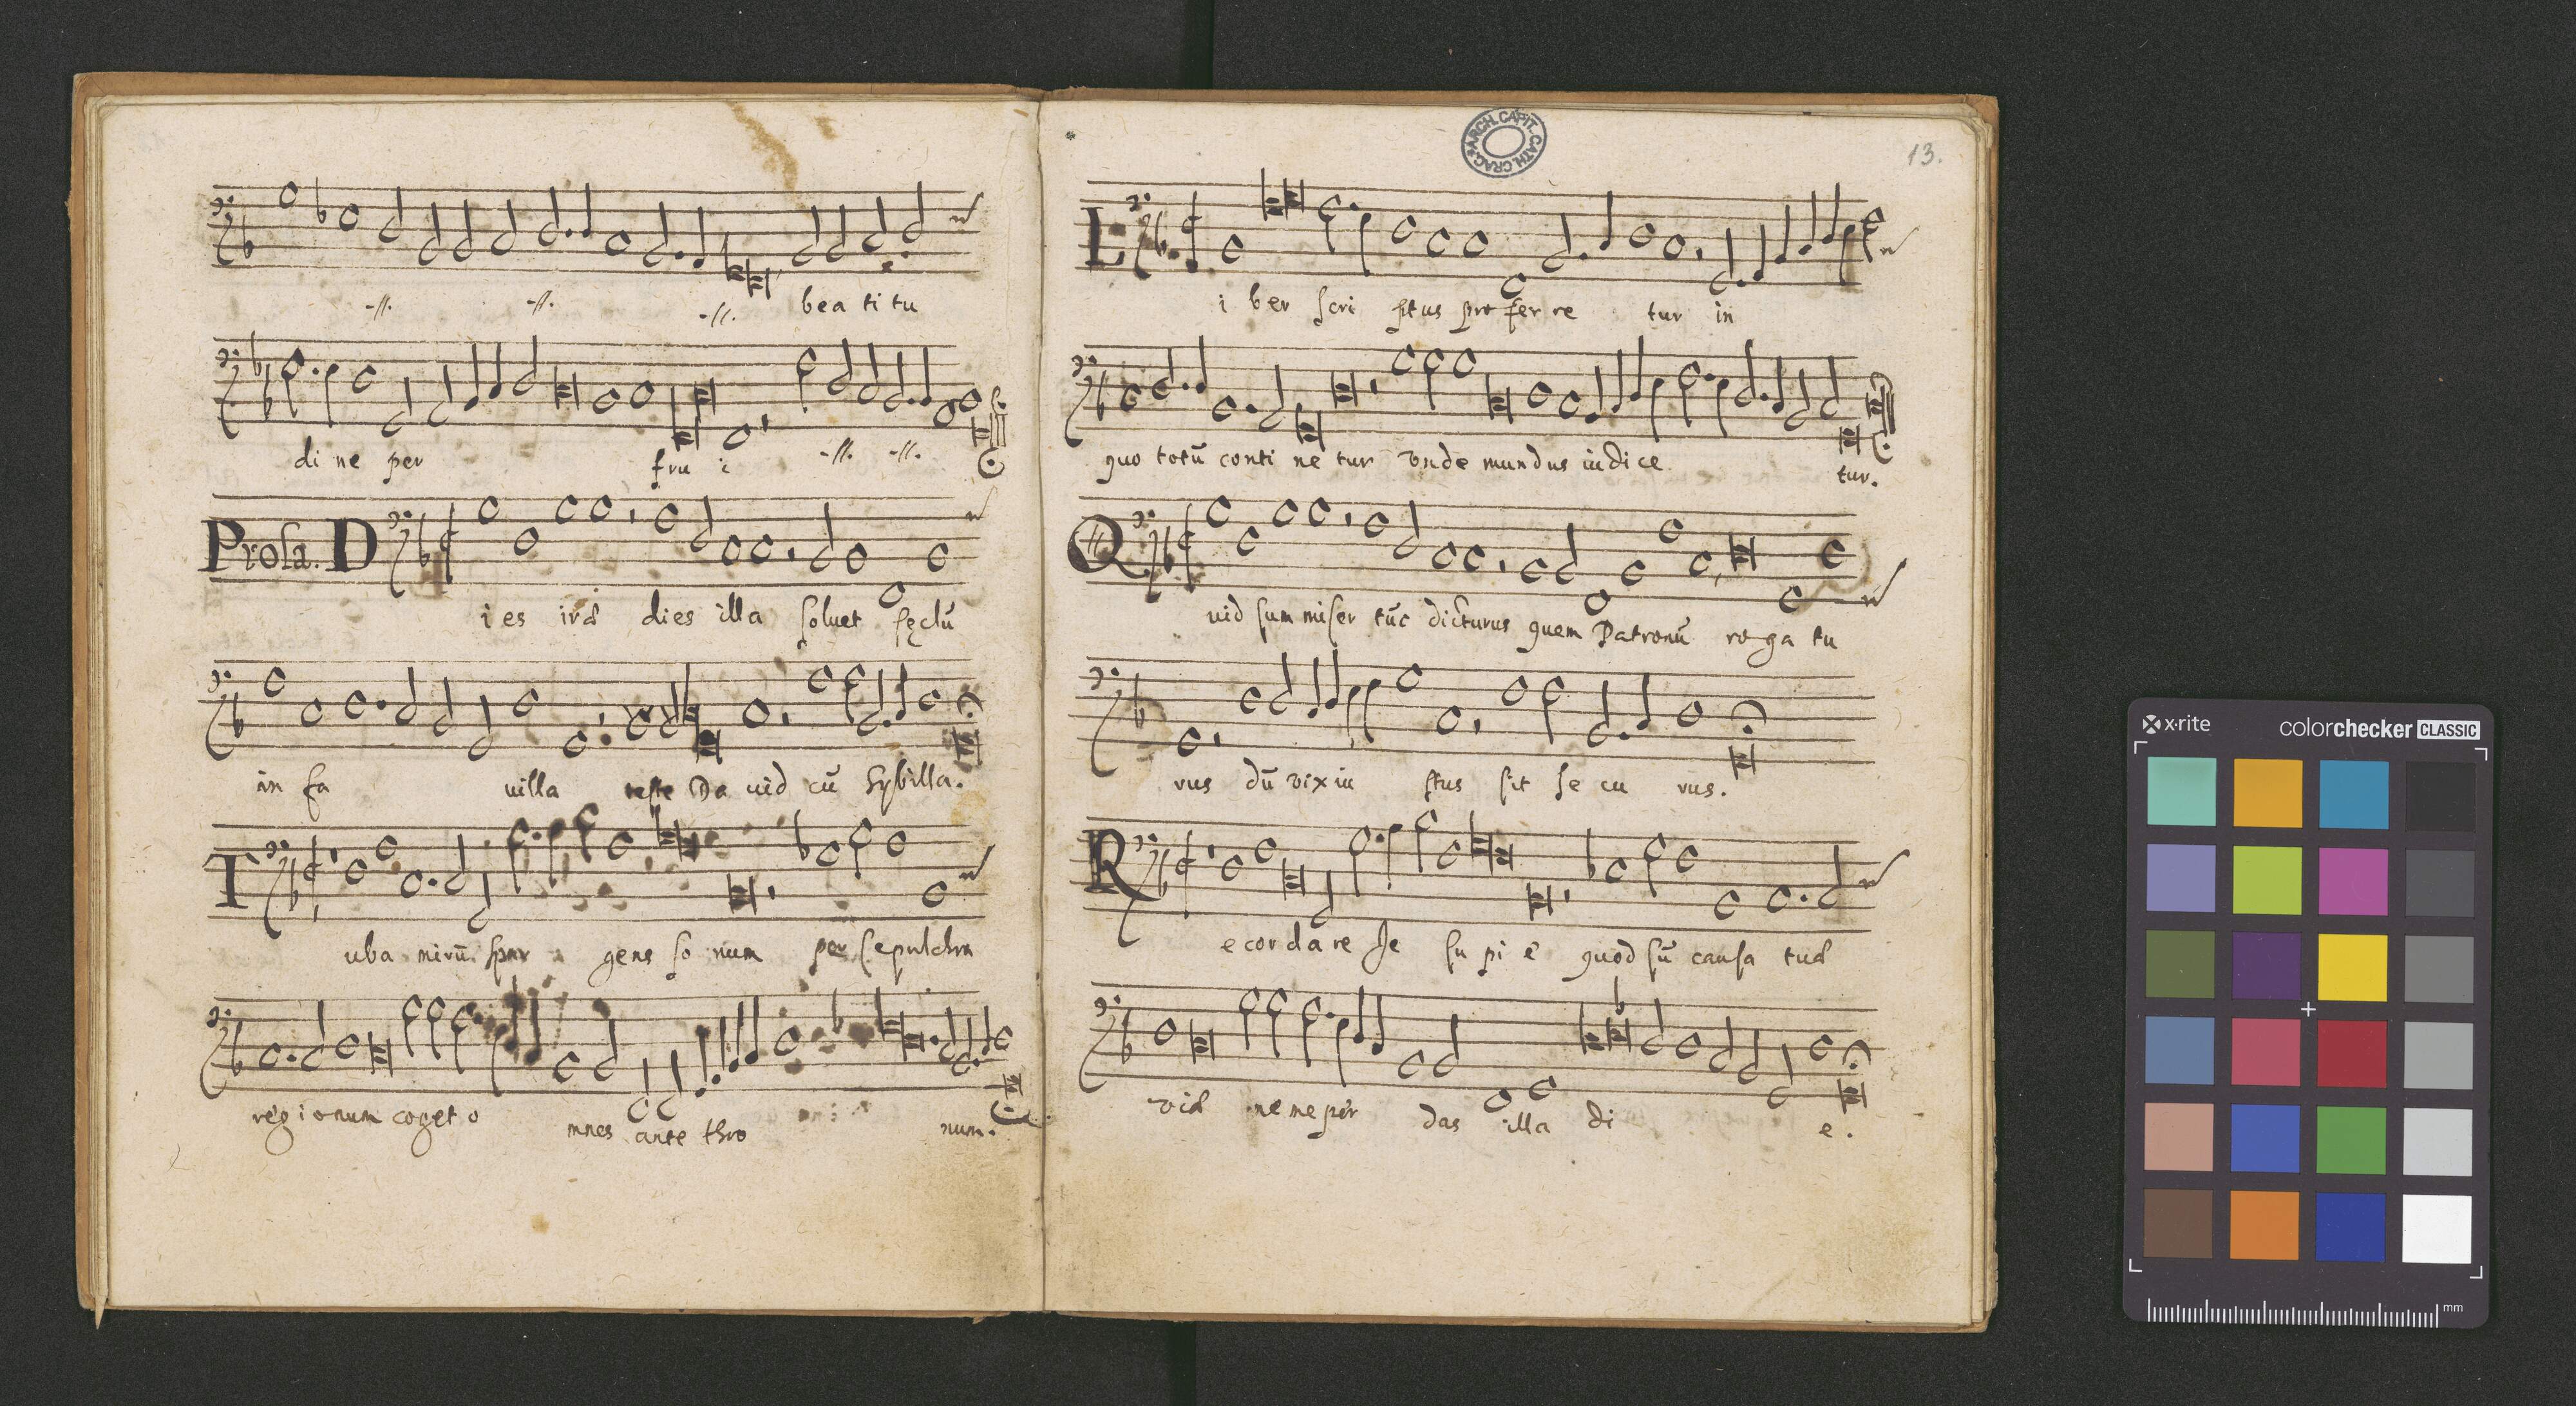 -//. -//. -//. bea ti tu
di ne per fru i -//. -//.
Prosa. D
i es iræ dies illa soluet sęclū
in fa uilla teste Da uid cū Sybilla.
T
uba mirū spar gens so num per sepulchra
regionum coget o mnes ante thro num.
ARCH. CAPIT. CATH. CRAC.
13.
L
i ber scri ptus pro fer re tur in
quo totū conti ne tur vnde mundus iudice tur.
Q
uid sum miser tūc dicturus quem Patronū roga tu
rus dū vix iu stus sit se cu rus.
R
e cor da re Je su pi e quod sū causa tuæ
viæ ne me per das illa di e.
x·rite
colorchecker CLASSIC
mm